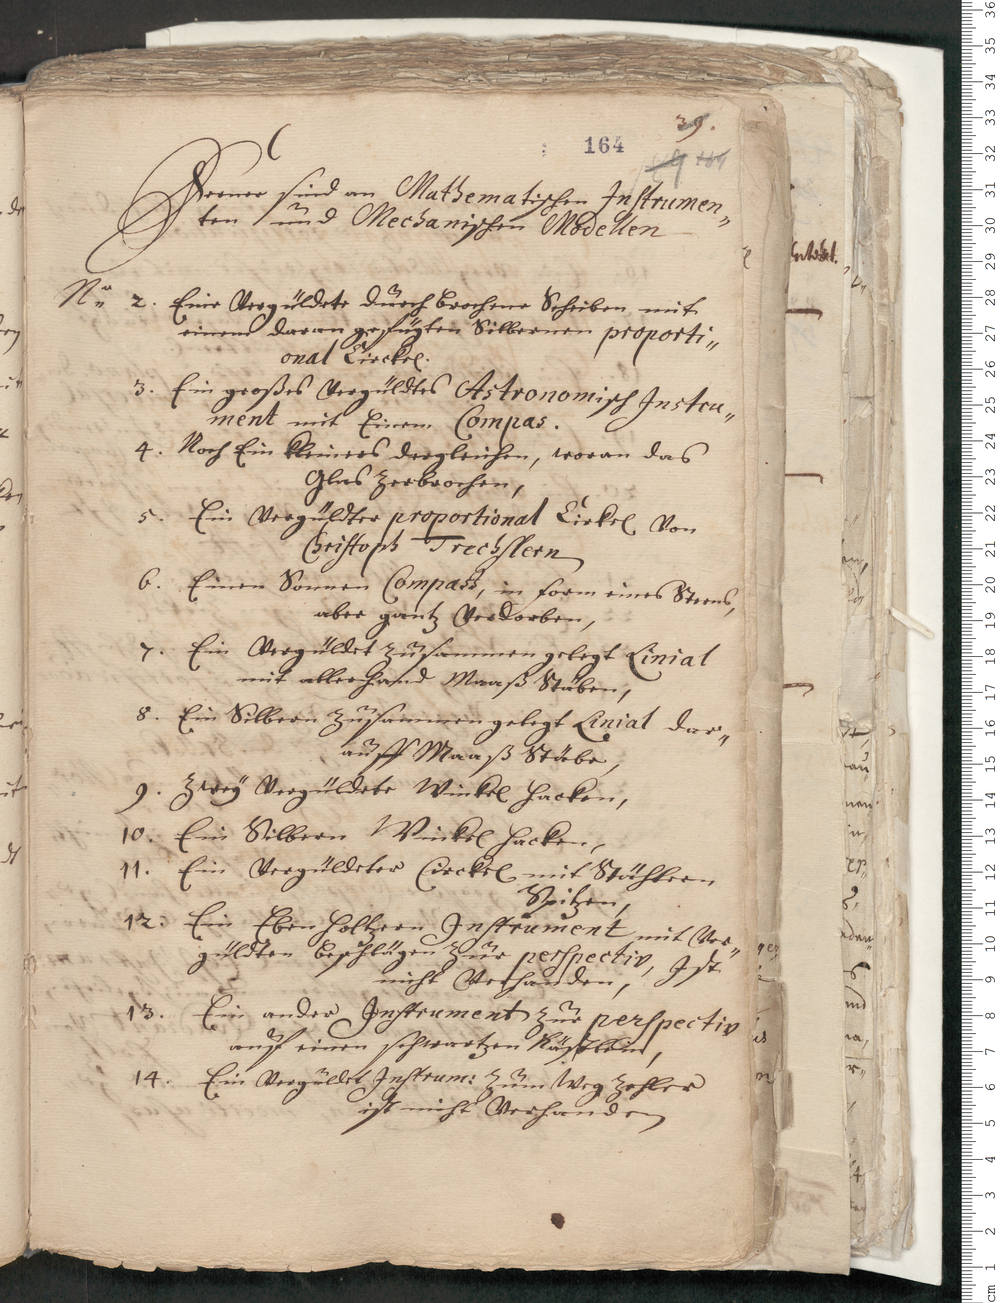 39.
164
Ferner sind an Mathematischen Instrumen„
ten und Mechanischen Modellen
No 2. Eine Vergüldete durch brochene Scheiben mit
einem daran gefügten Silbernen proporti„
onal Circkel.
3. Ein großes Vergüldtes Astronomisch Instru„
ment mit Einem Compas.
4. Noch Ein kleiners dergleichen, woran das
Glas zerbrochen,
5. Ein Vergüldter proportional Cirkel von
Christoph Trechslern
6. Einen Sonnen Compass, in form eines Sterns,
aber gantz Verdorben,
7. Ein Vergüldet zusammen gelegt Linial
mit allerhand Maaß Stäben,
8. Ein Silbern zusammen gelegt Linial dar„
auff Maaß Stäbe,
9. Zwey Vergüldete Winckel hacken,
10. Ein Silbern Winckel hacken,
11. Ein Vergüldeter Circkel mit Stählern
Spitzen,
12. Ein Eben holtzern Instrument mit Ver„
güldten beschlägen zur perspectiv, Ist
nicht Verhanden,
13. Ein ander Instrument zur perspectiv
auf einen schwartzen Kästlein,
14. Ein Vergüldet Instrum: zum Weg Zehler
ist nicht Verhanden